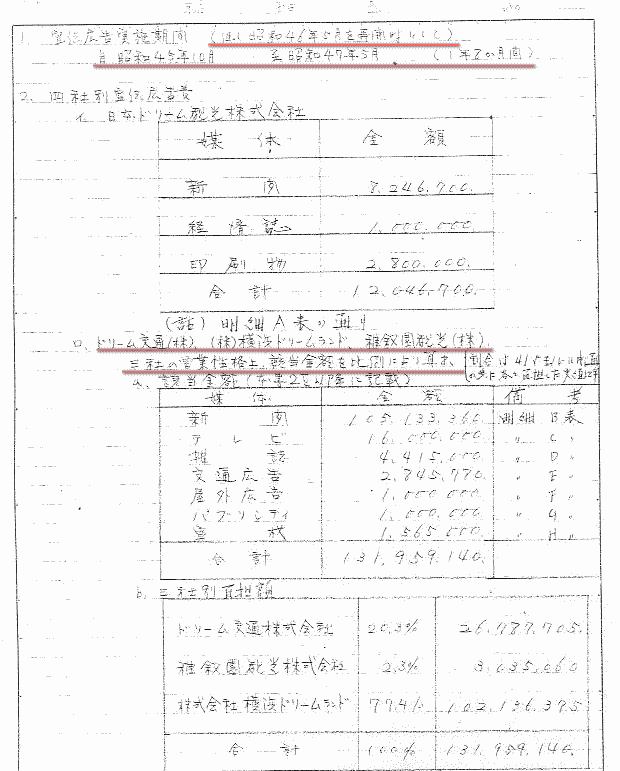 1. 宣伝広告実施期間 (但し昭和46年5月を再開時として)
自 昭和45年10月 至 昭和47年3月 (1年 ヶ月間)
2. 四社別宣伝広告費
イ. 日本ドリーム観光株式会社
媒体 金額
新聞 8,246,700.
経情誌 1,000,000.
印刷物 2,800,000.
合計 12,046,700.
(註) 明細A表の通り
ロ. ドリーム交通(株)、(株)横浜ドリームランド、雅叙園観光(株)
三社の営業性格上、該当金額を比例により算す、
a. 該当金額 (に記載)
媒体 金額 備考
新聞 105,133,360. 明細B表
テレビ 16,000,000. 〃 C 〃
雑誌 4,415,000. 〃 D 〃
交通広告 2,845,780. 〃 E 〃
屋外広告 1,000,000. 〃 F 〃
パブリシティ 1,000,000. 〃 G 〃
1,565,000. 〃 H 〃
合計 131,959,140.
b. 三社別負担額
ドリーム交通株式会社 20.3% 26,787,705.
雅叙園観光株式会社 2.3% 3,035,060
株式会社横浜ドリームランド 77.4% 102,136,375
合計 100% 131,959,140.